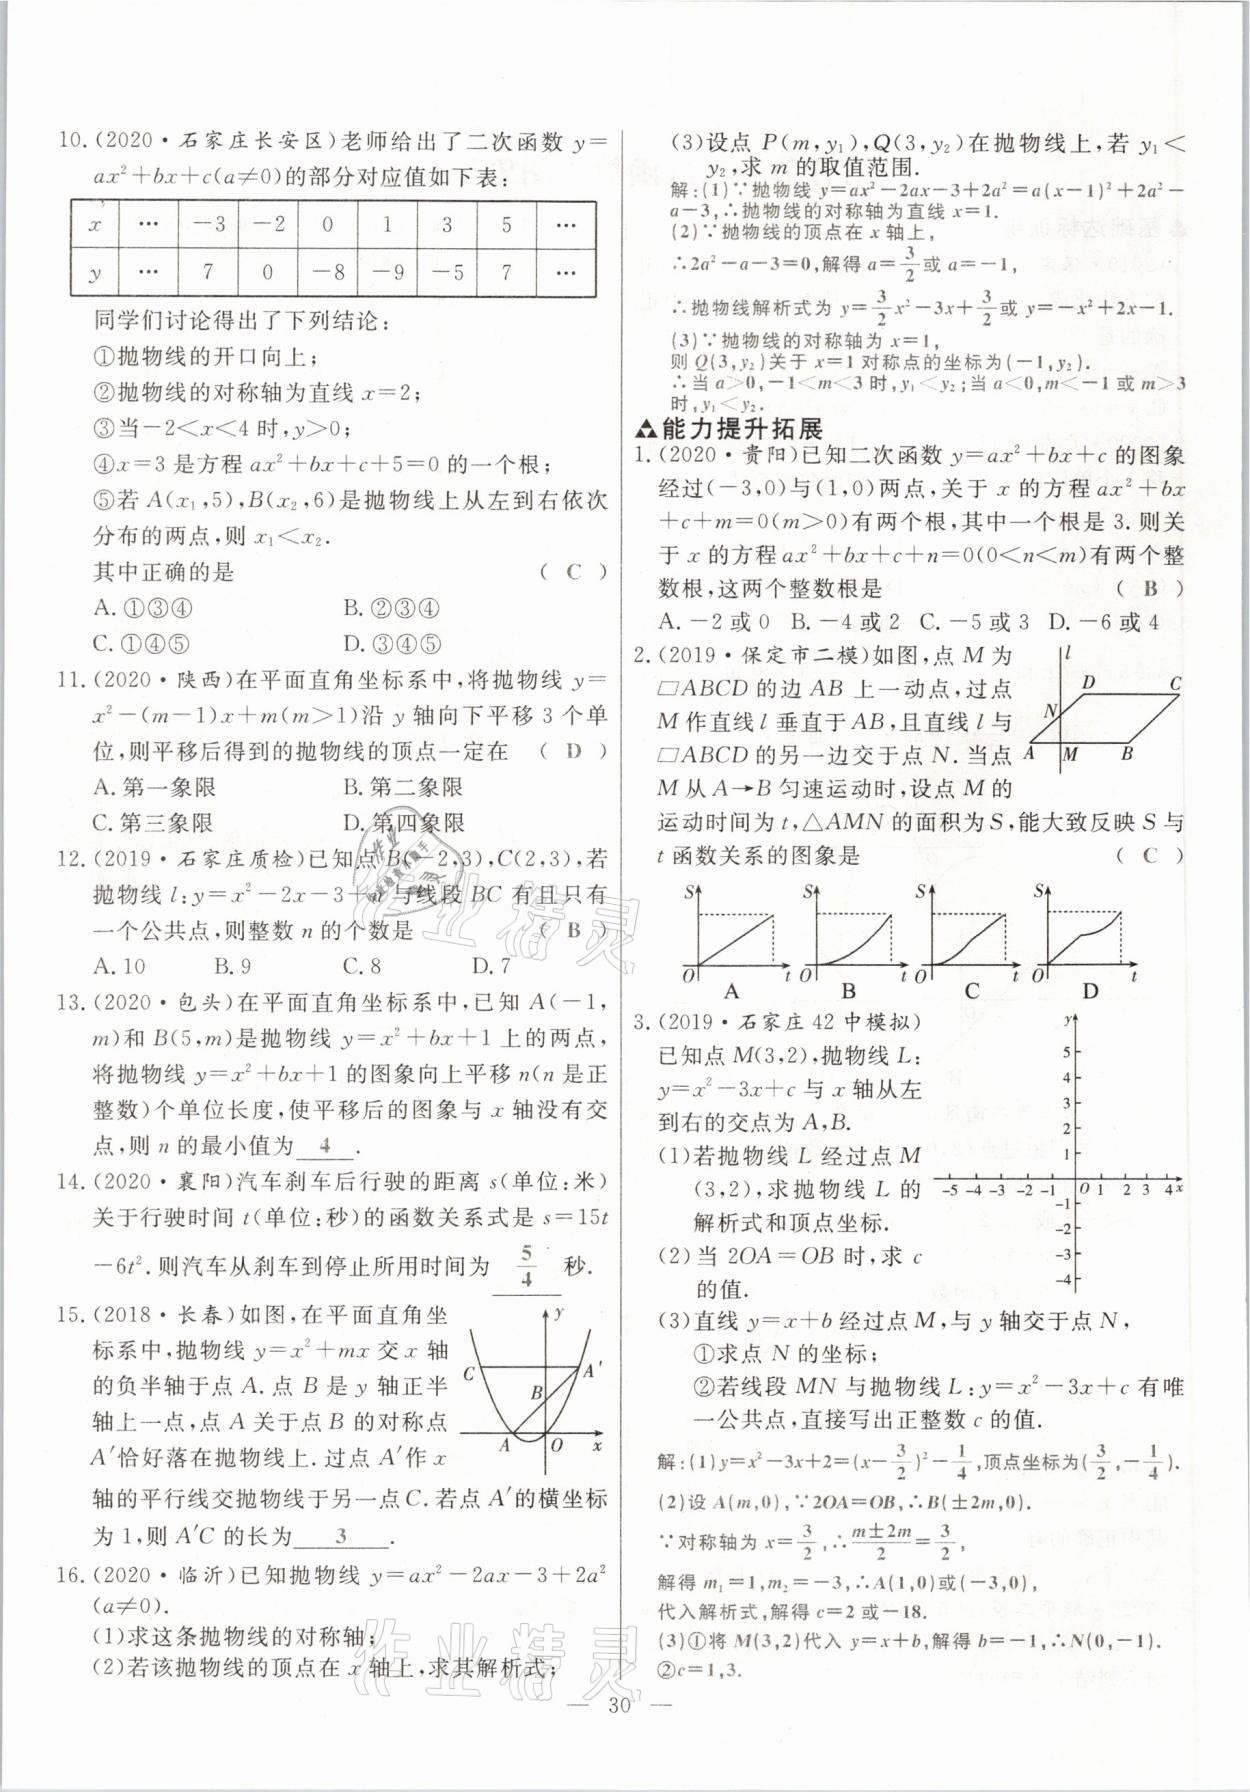 10.(2020·石家庄长安区)老师给出了二次函数 y=
ax²+bx+c(a≠0)的部分对应值如下表:
x … -3 -2 0 1 3 5 …
y … 7 0 -8 -9 -5 7 …
同学们讨论得出了下列结论:
①抛物线的开口向上;
②抛物线的对称轴为直线 x=2;
③当-2<x<4 时,y>0;
④x=3 是方程 ax²+bx+c+5=0 的一个根;
⑤若 A(x₁,5),B(x₂,6)是抛物线上从左到右依次
分布的两点,则 x₁<x₂.
其中正确的是 ( C )
A.①③④ B.②③④
C.①④⑤ D.③④⑤
11.(2020·陕西)在平面直角坐标系中,将抛物线 y=
x²-(m-1)x+m(m>1)沿 y 轴向下平移 3 个单
位,则平移后得到的抛物线的顶点一定在 ( D )
A.第一象限 B.第二象限
C.第三象限 D.第四象限
12.(2019·石家庄质检)已知点 B(-2,3),C(2,3),若
抛物线 l:y=x²-2x-3+n 与线段 BC 有且只有
一个公共点,则整数 n 的个数是 ( B )
A.10 B.9 C.8 D.7
13.(2020·包头)在平面直角坐标系中,已知 A(-1,
m)和 B(5,m)是抛物线 y=x²+bx+1 上的两点,
将抛物线 y=x²+bx+1 的图象向上平移 n(n 是正
整数)个单位长度,使平移后的图象与 x 轴没有交
点,则 n 的最小值为 4 .
14.(2020·襄阳)汽车刹车后行驶的距离 s(单位:米)
关于行驶时间 t(单位:秒)的函数关系式是 s=15t
-6t².则汽车从刹车到停止所用时间为 5/4 秒.
15.(2018·长春)如图,在平面直角坐
标系中,抛物线 y=x²+mx 交 x 轴
的负半轴于点 A.点 B 是 y 轴正半
轴上一点,点 A 关于点 B 的对称点
A′恰好落在抛物线上.过点 A′作 x
轴的平行线交抛物线于另一点 C.若点 A′的横坐标
为 1,则 A′C 的长为 3 .
y
C A′
B
A O x
16.(2020·临沂)已知抛物线 y=ax²-2ax-3+2a²
(a≠0).
(1)求这条抛物线的对称轴;
(2)若该抛物线的顶点在 x 轴上,求其解析式;
(3)设点 P(m,y₁),Q(3,y₂)在抛物线上,若 y₁<
y₂,求 m 的取值范围.
解:(1)∵抛物线 y=ax²-2ax-3+2a²=a(x-1)²+2a²-
a-3,∴抛物线的对称轴为直线 x=1.
(2)∵抛物线的顶点在 x 轴上,
∴2a²-a-3=0,解得 a=3/2或 a=-1,
∴抛物线解析式为 y=3/2x²-3x+3/2或 y=-x²+2x-1.
(3)∵抛物线的对称轴为 x=1,
则 Q(3,y₂)关于 x=1 对称点的坐标为(-1,y₂).
∴当 a>0,-1<m<3 时,y₁<y₂;当 a<0,m<-1 或 m>3
时,y₁<y₂.
能力提升拓展
1.(2020·贵阳)已知二次函数 y=ax²+bx+c 的图象
经过(-3,0)与(1,0)两点,关于 x 的方程 ax²+bx
+c+m=0(m>0)有两个根,其中一个根是 3.则关
于 x 的方程 ax²+bx+c+n=0(0<n<m)有两个整
数根,这两个整数根是 ( B )
A.-2 或 0 B.-4 或 2 C.-5 或 3 D.-6 或 4
2.(2019·保定市二模)如图,点 M 为
▱ABCD 的边 AB 上一动点,过点
M 作直线 l 垂直于 AB,且直线 l 与
▱ABCD 的另一边交于点 N.当点
M 从 A→B 匀速运动时,设点 M 的
运动时间为 t,△AMN 的面积为 S,能大致反映 S 与
t 函数关系的图象是 ( C )
l
D C
N
A M B
S S S S
O t O t O t O t
A B C D
3.(2019·石家庄 42 中模拟)
已知点 M(3,2),抛物线 L:
y=x²-3x+c 与 x 轴从左
到右的交点为 A,B.
(1)若抛物线 L 经过点 M
(3,2),求抛物线 L 的
解析式和顶点坐标.
(2)当 2OA=OB 时,求 c
的值.
y
5
4
3
2
1
-5 -4 -3 -2 -1 O 1 2 3 4 x
-1
-2
-3
-4
(3)直线 y=x+b 经过点 M,与 y 轴交于点 N,
①求点 N 的坐标;
②若线段 MN 与抛物线 L:y=x²-3x+c 有唯
一公共点,直接写出正整数 c 的值.
解:(1)y=x²-3x+2=(x-3/2)²-1/4,顶点坐标为(3/2,-1/4).
(2)设 A(m,0),∵2OA=OB,∴B(±2m,0).
∵对称轴为 x=3/2,∴(m±2m)/2=3/2,
解得 m₁=1,m₂=-3,∴A(1,0)或(-3,0),
代入解析式,解得 c=2 或-18.
(3)①将 M(3,2)代入 y=x+b,解得 b=-1,∴N(0,-1).
②c=1,3.
作业精灵
作业精灵
— 30 —